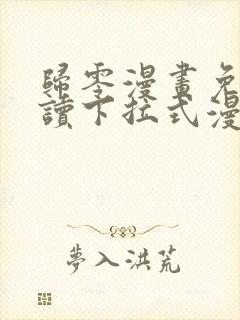 歸零漫畫免
讀下拉式漫
夢入洪荒